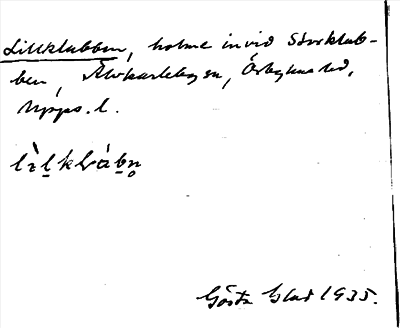 Lillklubben, holme invid Storklub-
ben, Älvkarleby sn, Örbyhus hd,
Upps. l.
lìḷkḷàbn̥
Gösta 1935.